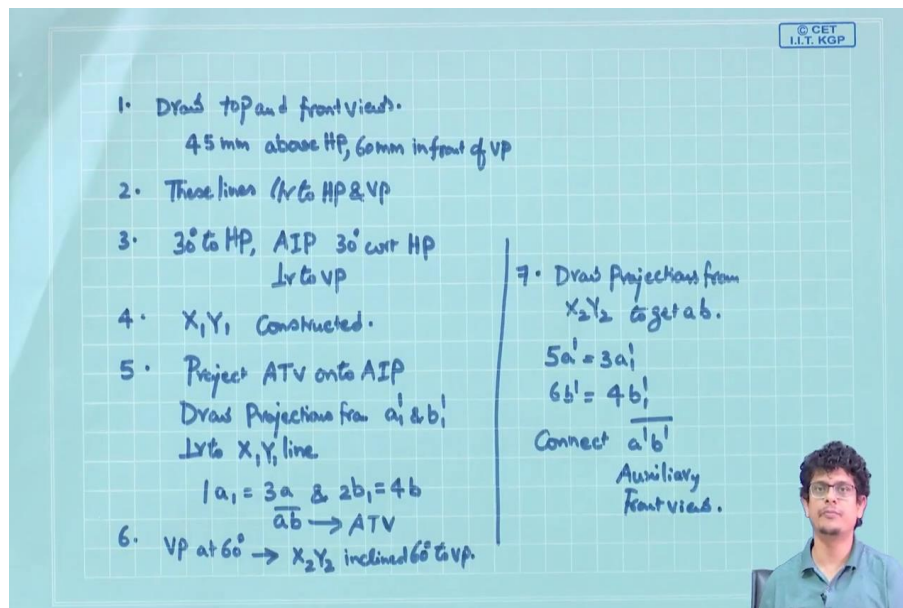 © CET
I.I.T. KGP
1. Draw top and front views.
45 mm above HP, 60mm in front of VP
2. These lines llr to HP & VP
3. 30° to HP, AIP 30° wrt HP
⊥r to VP
4. X₁Y₁ Constructed.
5. Project ATV onto AIP
Draw Projections from a₁' & b₁'
⊥r to X₁Y₁ line.
1a₁ = 3a & 2b₁ = 4b
ab → ATV
6. VP at 60° → X₂Y₂ inclined 60° to VP.
7. Draw Projections from
X₂Y₂ to get ab.
5a' = 3a₁'
6b' = 4b₁'
Connect a'b'
Auxiliary
Front views.